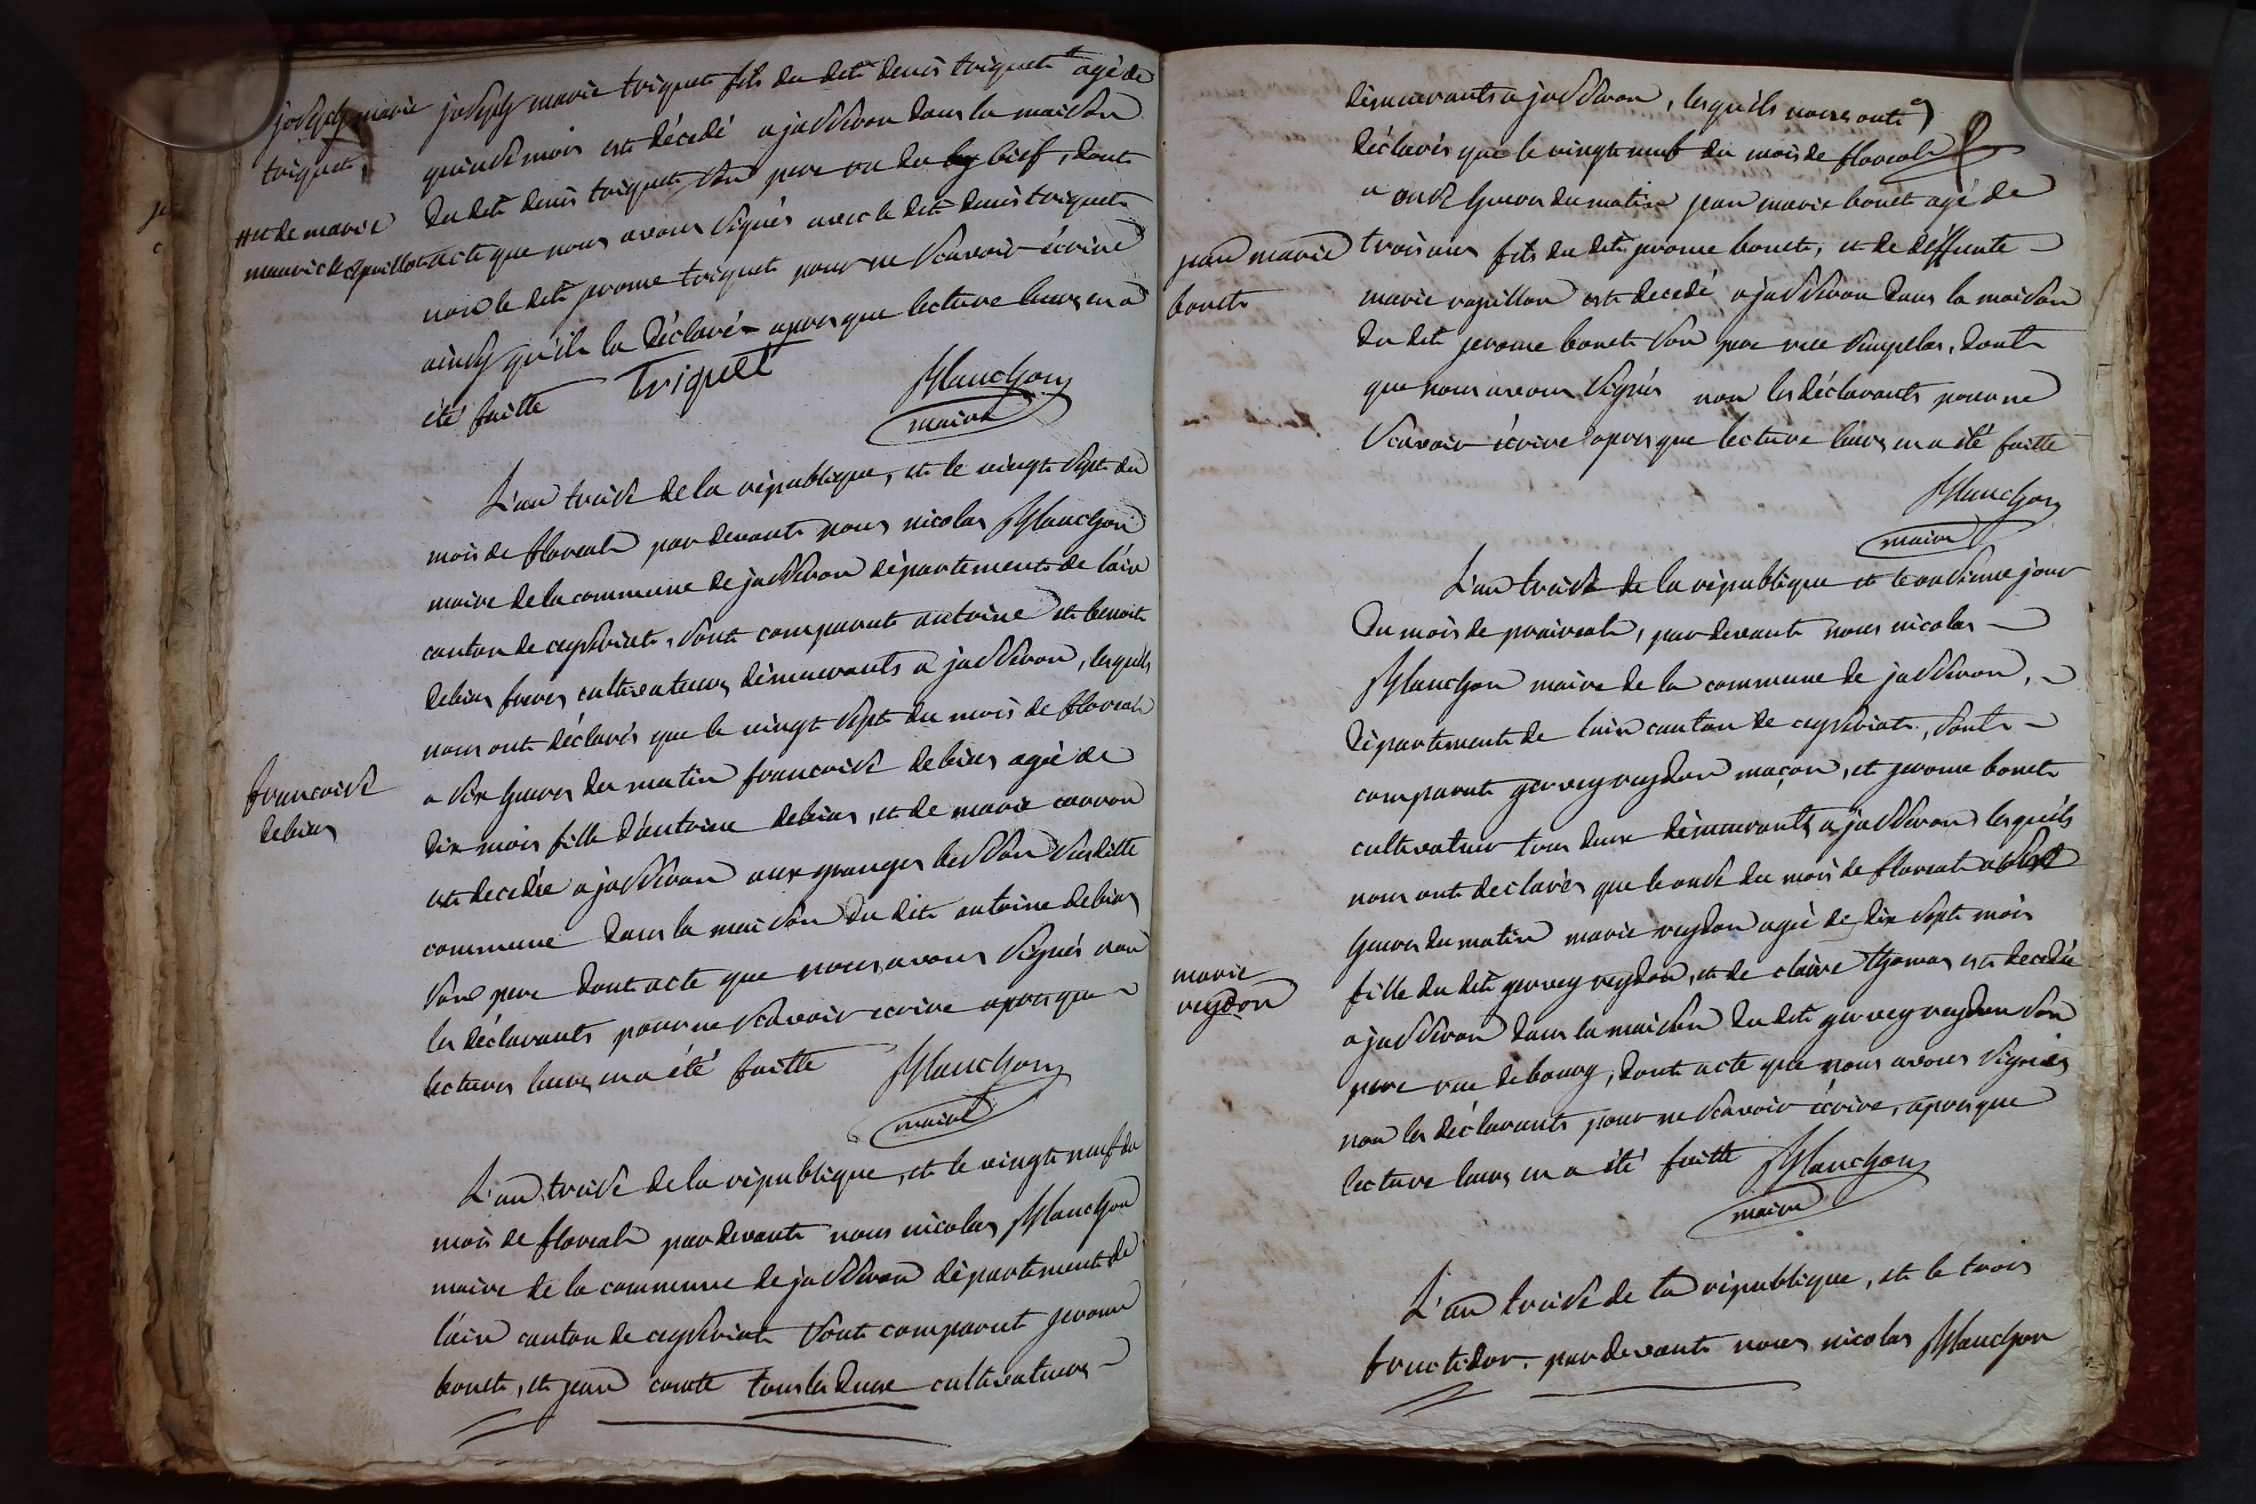 joseph marie
triquet
++ et de marie
maurice
joseph marie triquet fils du dit denis triquet ++ agé de
quinse mois est décedé a jasseron dans la maison
du dit denis triquet son pere rue du bief, dont
acte que nous avons signés avec le dit denis triquet
non le dit jerome triquet pour ne scavoir écrire
ainsy qu'il la déclaré apres que lecture leurs en a
été faitte Triquet Planchon
maire
L'an treise de la république, et le vingt sept du
mois de floreal par devant nous nicolas Planchon
maire de la commune de jasseron département de l'ain
canton de ceyseriat, sont comparut antoine et benoit
debias freres cultivateurs démeurants a jasseron, lesquels
nous ont déclarés que le vingt sept du mois de floreal
a six heures du matin francoise debias agée de
dix mois fille d'antoine debias, et de marie carron
est decedée a jasseron aux granges susditte
commune dans la maison du dit antoine debias
son pere dont acte que nous avons signés non
les déclarants pour ne scavoir ecrire apres que
lectures leurs en a été faitte Planchon
maire
francoise
debias
L'an treise de la république, et le vingt neuf du
mois de floreal par devant nous nicolas Planchon
maire de la commune de jasseron département de
l'ain canton de ceyseriat sont comparut jerome
bonet, et jean comte tous les deux cultivateurs
démeurants a jasseron, lesquels nous ont
déclarés que le vingt neuf du mois de floreal
a onse heures du matin jean marie bonet agé de
trois ans fils du dit jerome bonet, et de déffunte
marie est decedé a jasseron dans la maison
du dit jerome bonet son pere rue, dont
que nous avons signés non les déclarants pour ne
scavoir écrire apres que lecture leurs en a été faitte
Planchon
maire
jean marie
bonet
L'an treise de la république et le onsieme jour
du mois de praireal, par devant nous nicolas
Planchon maire de la commune de jasseron,
département de l'ain canton de ceyseriat, sont
comparut gervey reydon maçon, et jerome bonet
cultivateur tous deux démeurants a jasseron lesquels
nous ont declarés que le onse du mois de floreal a
heures du matin marie reydon agée de dix sept mois
fille du dit gervey reydon, et de claire thomas est decedée
a jasseron dans la maison du dit gervey reydon son
pere rue de bourg, dont acte que nous avons signés
non les déclarants pour ne scavoir écrire, apres que
lecture leurs en a été faitte Planchon
maire
marie
reydon
L'an treise de la république, et le trois
fructidor. par devant nous nicolas Planchon